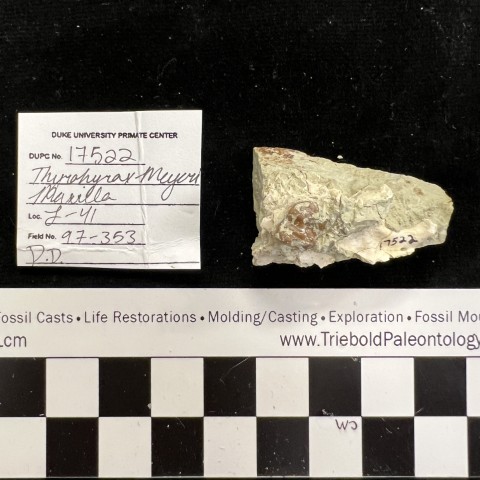 DUKE UNIVERSITY PRIMATE CENTER
DUPC No. 17522
Thyrohyrax Meyeri
Maxilla
Loc. L-41
Field No. 97-353
D.D.
17522
Fossil Casts • Life Restorations • Molding/Casting • Exploration • Fossil Mou
1cm www.TrieboldPaleontology
CM